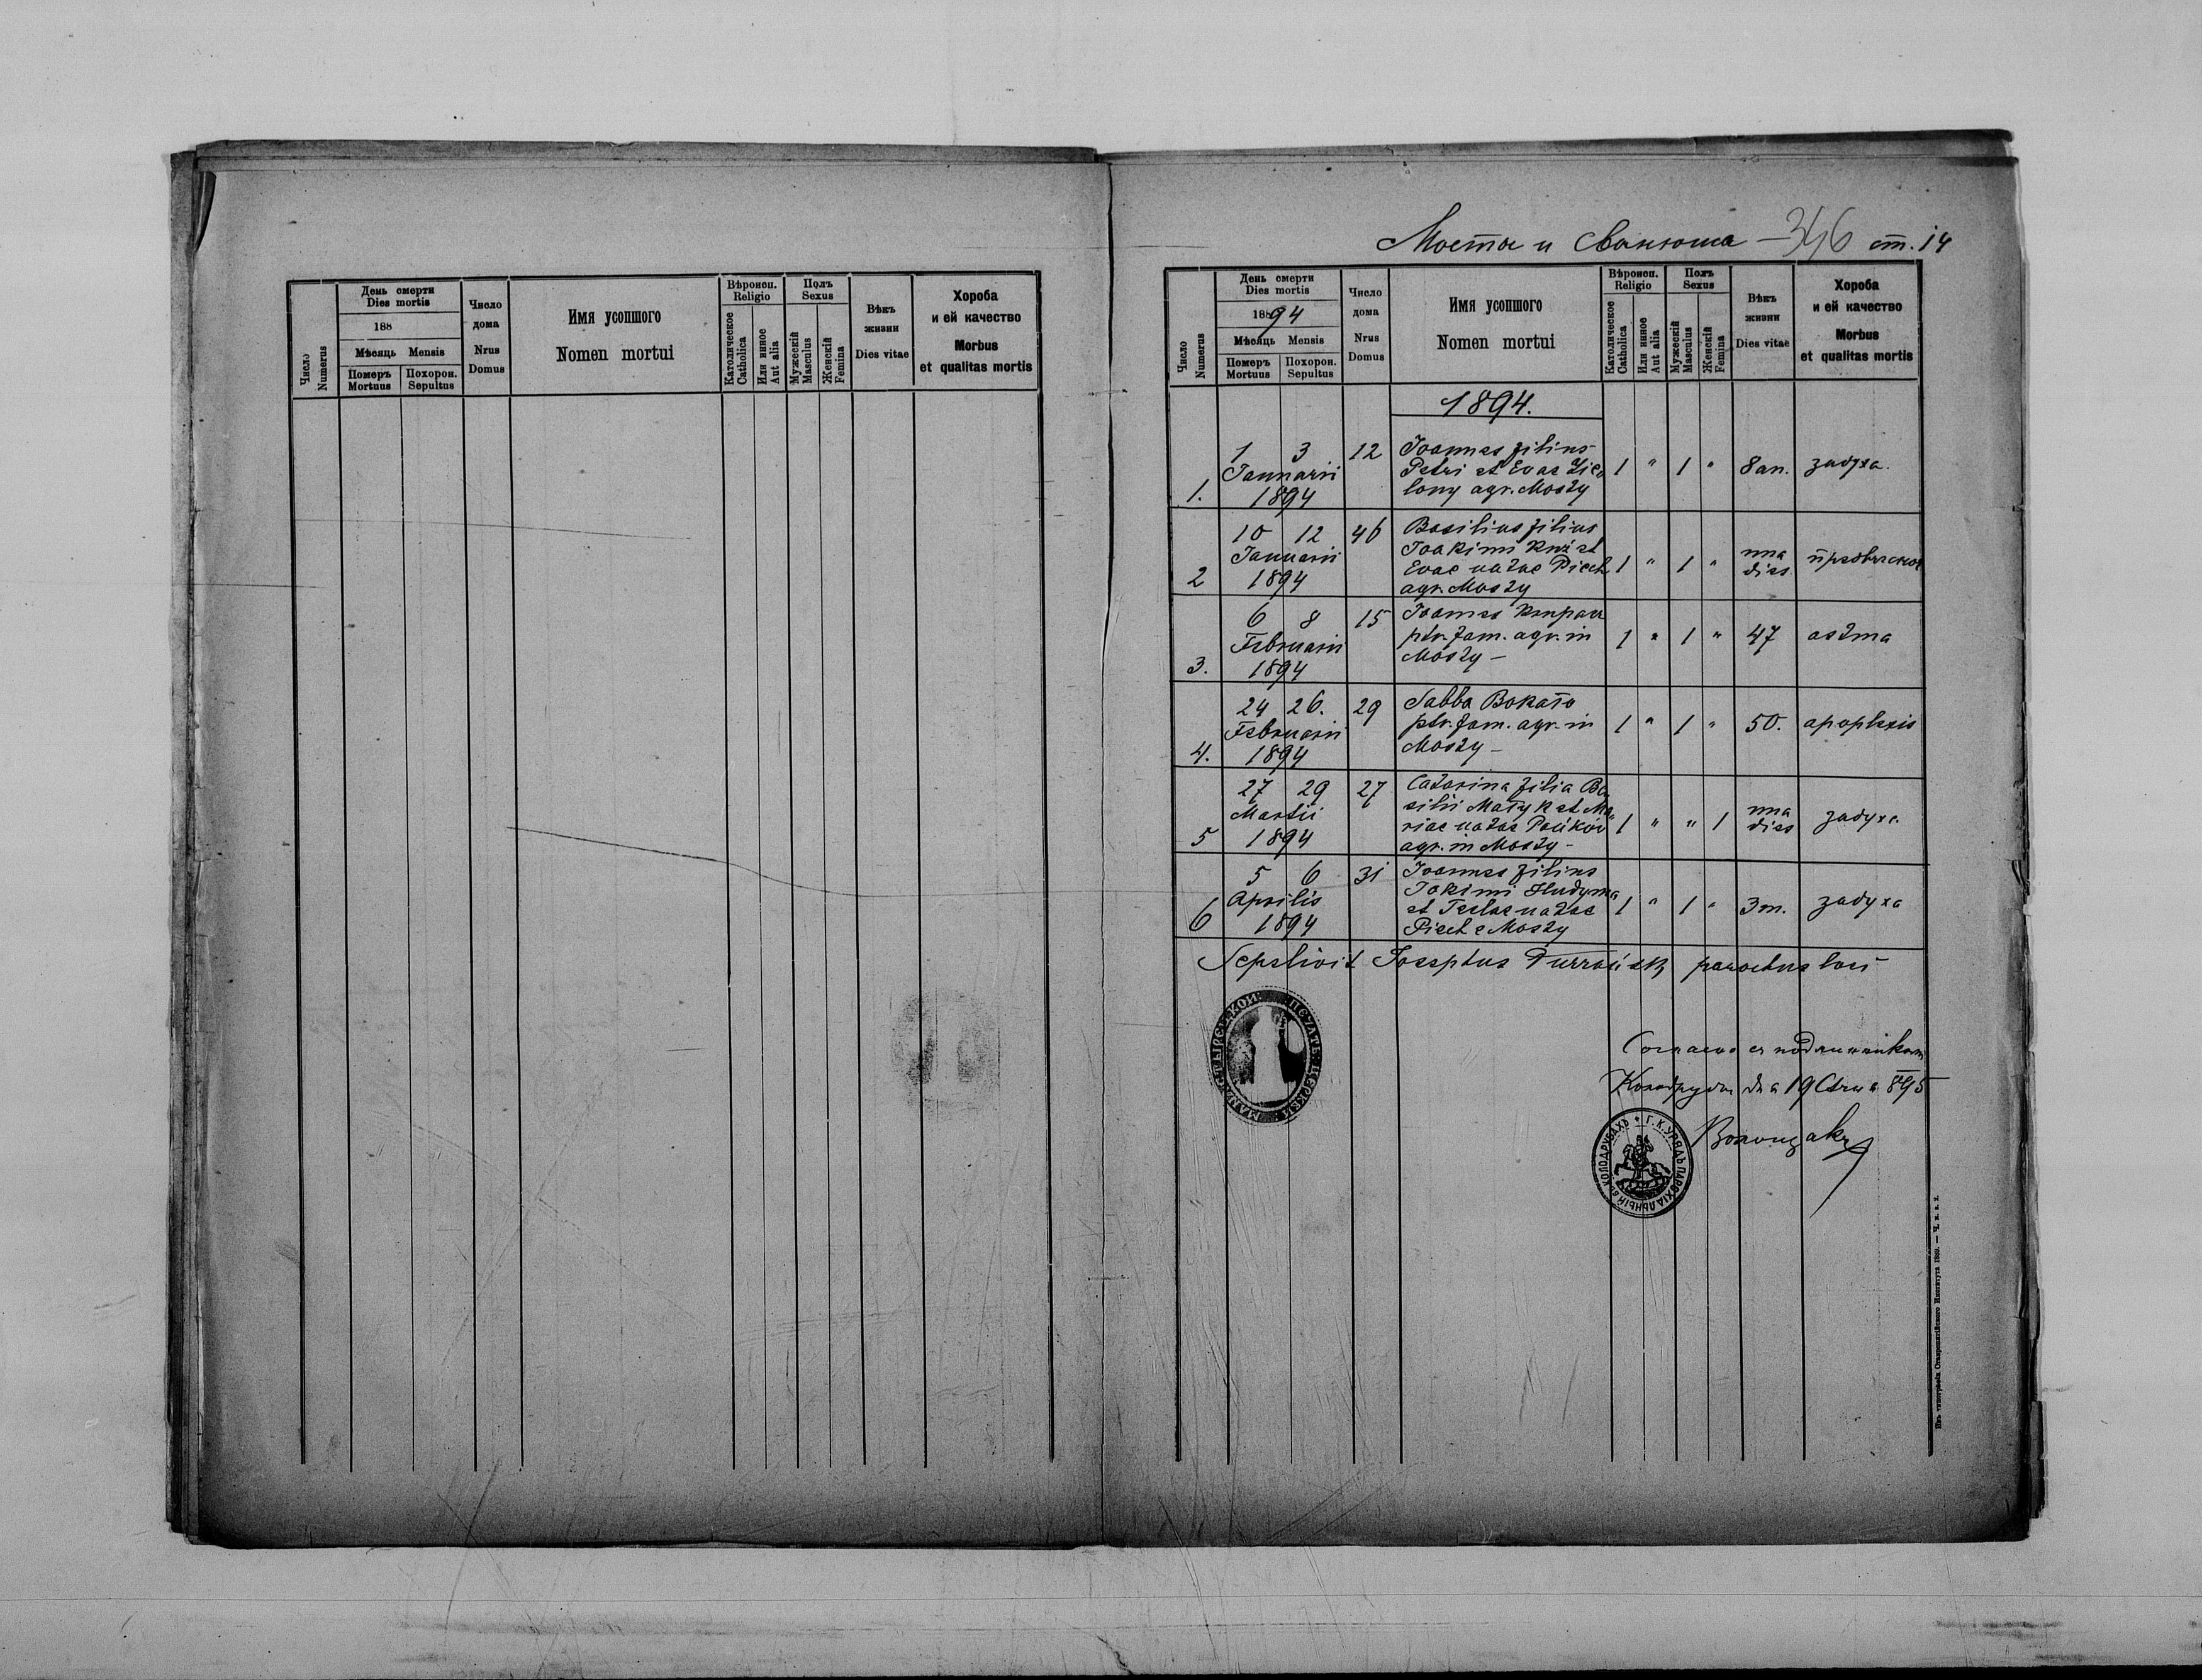 Число
Numerus
День смерти
Dies mortis
188
Мѣсяць Mensis
Померъ
Mortuus
Похорон.
Sepultus
Число
дома
Nrus
Domus
Имя усопшого
Nomen mortui
Вѣроисп.
Religio
Католическое
Catholica
Или инное
Aut alia
Полъ
Sexus
Мужескій
Masculus
Женскій
Femina
Вѣкъ
жизни
Dies vitae
Хороба
и ей качество
Morbus
et qualitas mortis
Мосты и 346 ст. 14
Число
Numerus
День смерти
Dies mortis
18894
Мѣсяць Mensis
Померъ
Mortuus
Похорон.
Sepultus
Число
дома
Nrus
Domus
Имя усопшого
Nomen mortui
Вѣроисп.
Religio
Католическое
Catholica
Или инное
Aut alia
Полъ
Sexus
Мужескій
Masculus
Женскій
Femina
Вѣкъ
жизни
Dies vitae
Хороба
и ей качество
Morbus
et qualitas mortis
1894.
1 3 12 Joannes filius
Januarii Petri et Evae Zie
1. 1894 lony agr. Mosty 1 " 1 " 8 an. задуха.
10 12 46 Basilius filius
Januarii Joakimi et
Evae natae Piech 1 " 1 " una
2 1894 agr. Mosty dies
6 8 15 Joannes
Februarii ptr. fam. agr. in 1 " 1 " 47 astma
3. 1894 Mosty –
24 26. 29 Sabba
Februarii ptr. fam. agr. in 1 " 1 " 50. apoplexis
4. 1894 Mosty –
27 29 27 Catarina filia Ba
Martii silii et Ma
riae natae 1 " " 1 una задуха
5 1894 agr. in Mosty – dies
5 6 31 Joannes filius
Aprilis Jakimi Hudyma
et Teclae natae 1 " 1 " 3 m. задуха
6 1894 Piech e Mosty
Sepelivit Josephus parochus loci
ПЕЧАТЬ ЦЕРКВИ
Согласно съ подлинникомъ
Колодрубы дня 19 895
Г. К. УРЯДЪ ПАРОХІАЛЬНЫЙ въ КОЛОДРУБАХЪ
Изъ типографіи Ставропигійского Института 1889. — Ч. з. з. з.